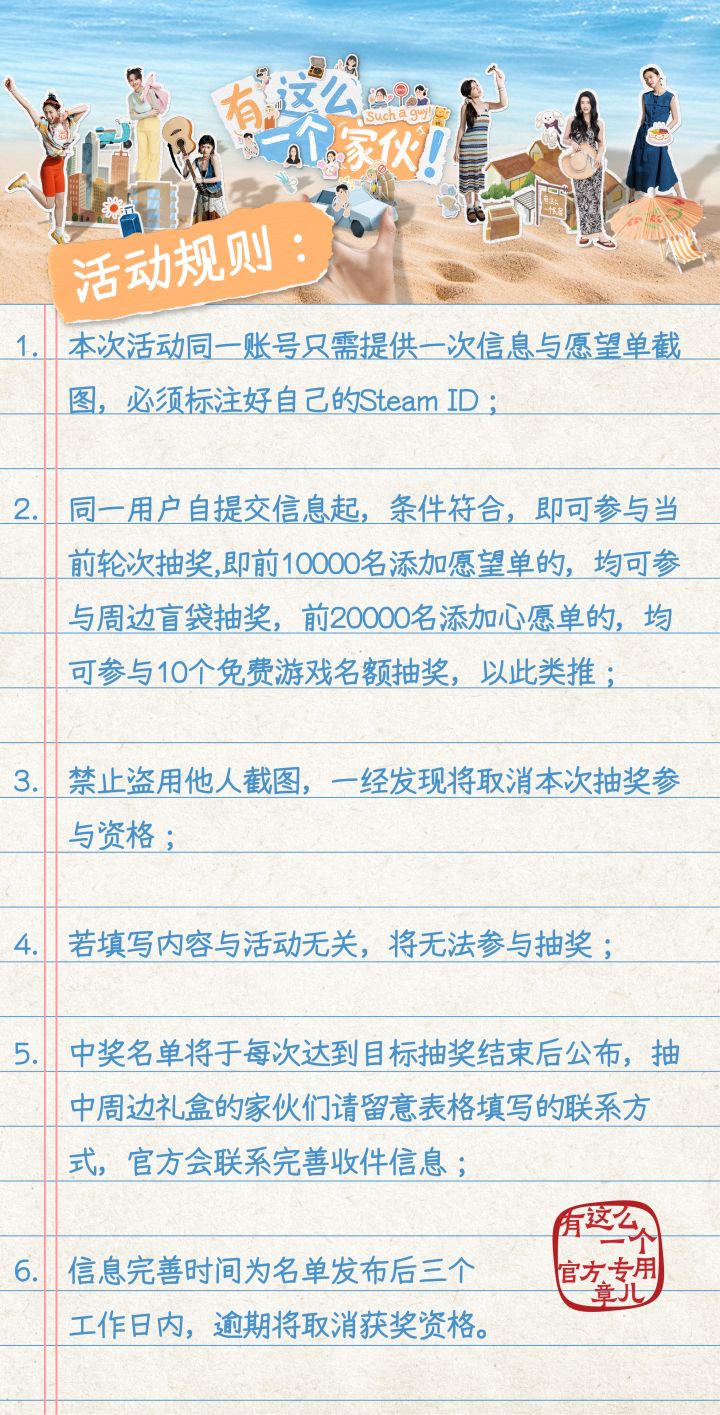 有这么
一个家伙!
Such a guy!
活动规则：
1. 本次活动同一账号只需提供一次信息与愿望单截
图，必须标注好自己的Steam ID；
2. 同一用户自提交信息起，条件符合，即可参与当
前轮次抽奖,即前10000名添加愿望单的，均可参
与周边盲袋抽奖，前20000名添加心愿单的，均
可参与10个免费游戏名额抽奖，以此类推；
3. 禁止盗用他人截图，一经发现将取消本次抽奖参
与资格；
4. 若填写内容与活动无关，将无法参与抽奖；
5. 中奖名单将于每次达到目标抽奖结束后公布，抽
中周边礼盒的家伙们请留意表格填写的联系方
式，官方会联系完善收件信息；
6. 信息完善时间为名单发布后三个
工作日内，逾期将取消获奖资格。
有这么
一个
官方专用
章儿